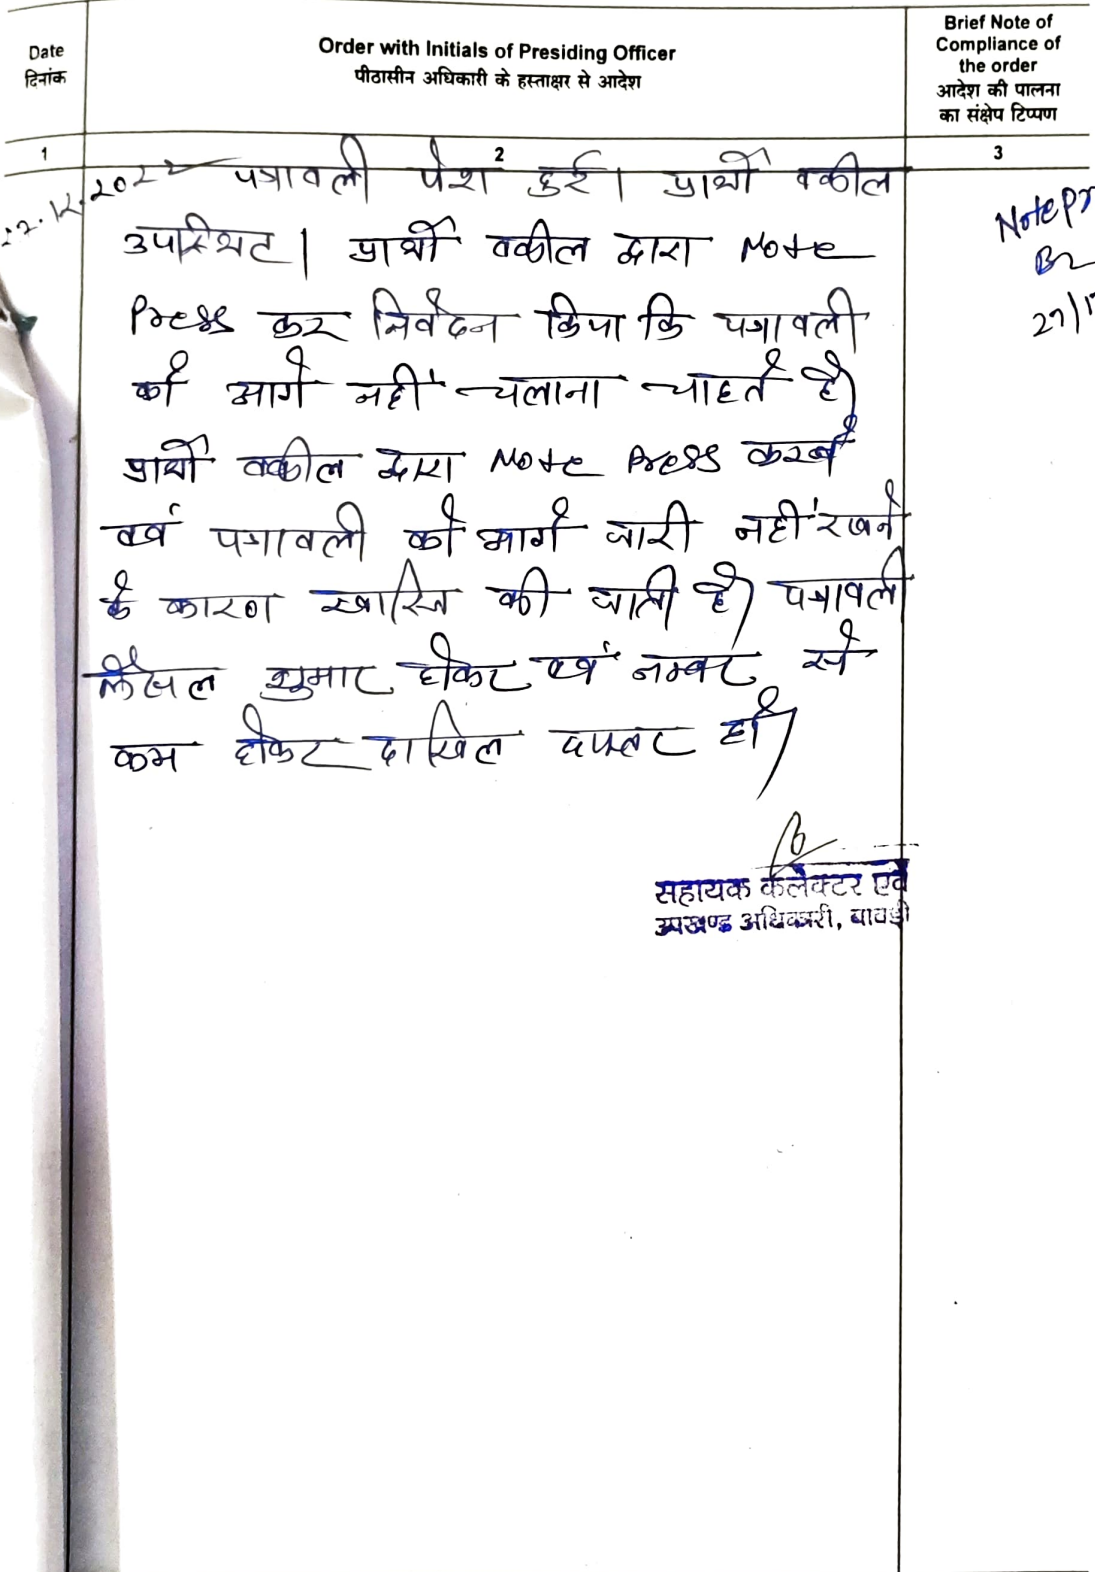 Date
दिनांक
Order with Initials of Presiding Officer
पीठासीन अधिकारी के हस्ताक्षर से आदेश
Brief Note of
Compliance of
the order
आदेश की पालना
का संक्षेप टिप्पण
1
2
3
22.12.2022 पत्रावली पेश हुई। प्रार्थी वकील
उपस्थित। प्रार्थी वकील द्वारा Note
Press कर निवेदन किया कि पत्रावली
को आगे नहीं चलाना चाहते है।
प्रार्थी वकील द्वारा Note Press करने
एवं पत्रावली को आगे जारी नहीं रखने
के कारण खारिज की जाती है। पत्रावली
फैसल शुमार होकर एवं नम्बर से
कम होकर दाखिल दफ्तर हो।
Note Pr
सहायक कलेक्टर एवं
उपखण्ड अधिकारी, बावड़ी